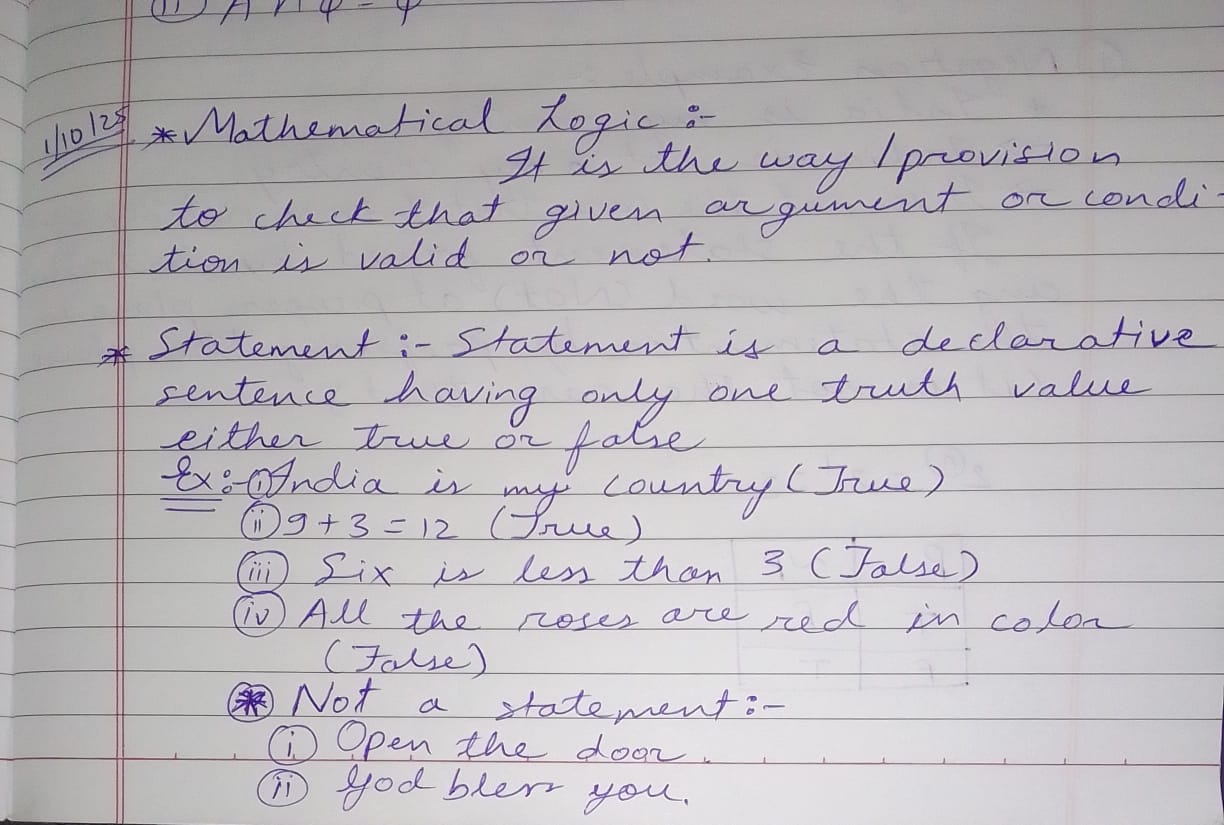 (ii) A ∩ φ = φ
1/10/25 * Mathematical Logic :-
It is the way / provision
to check that given argument or condi-
tion is valid or not.
* Statement :- Statement is a declarative
sentence having only one truth value
either true or false
Ex:- (i) India is my country (True)
(ii) 9 + 3 = 12 (True)
(iii) Six is less than 3 (False)
(iv) All the roses are red in color
(False)
* Not a statement :-
(i) Open the door.
(ii) God bless you.